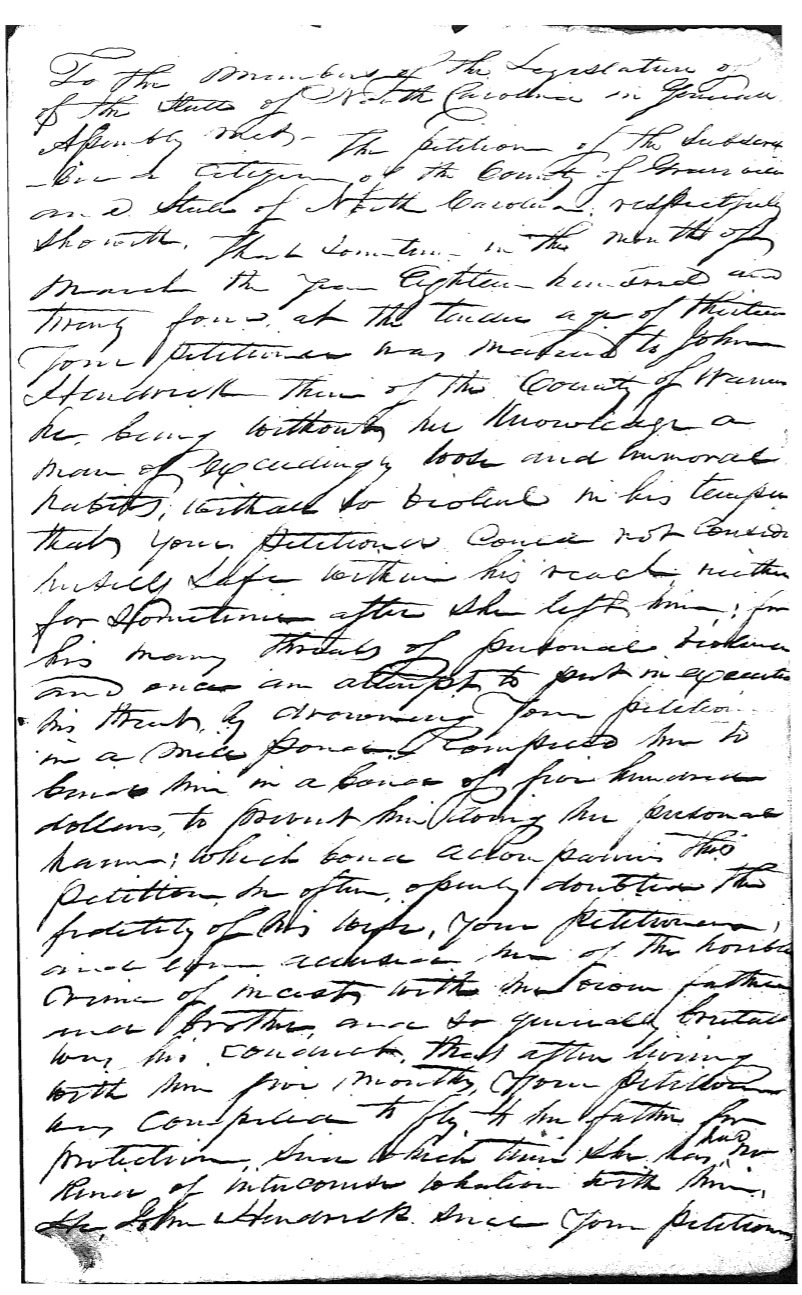 To the Members of the Legislature of
of the State of North Carolina in General
Assembly met – The petition of the Subscri
-ber a citizen of the County of Granville
and State of North Carolina, respectfully
Showeth. That sometime in the month of
March the year Eighteen hundred and
twenty four, at the tender age of thirteen
Your petitioner was married to John
Hendrick then of the County of Warren
he, being without her knowledge a
man of exceedingly loose and immoral
habits, withal so violent in his temper
that your petitioner could not consider
herself Safe within his reach, neither
for sometime after she left him; for
his many threats of personal violence
and once an attempt to put in execution
his threat, by drowning Your petition
in a mill pond, compelled her to
bind him in a bond of five hundred
dollars, to prevent his doing her personal
harm; which bond accompanies this
petition, he often, openly doubted the
fidelity of his wife, your petitioner,
and even accused her of the horrible
crime of incest with her own father
and brother, and so generally brutal
was his conduct, that after living
with him five months, Your petitioner
was compelled to fly to her father for
protection, since which time she has had no
kind of intercourse whatever with him,
He, John Hendrick since Your petitioner